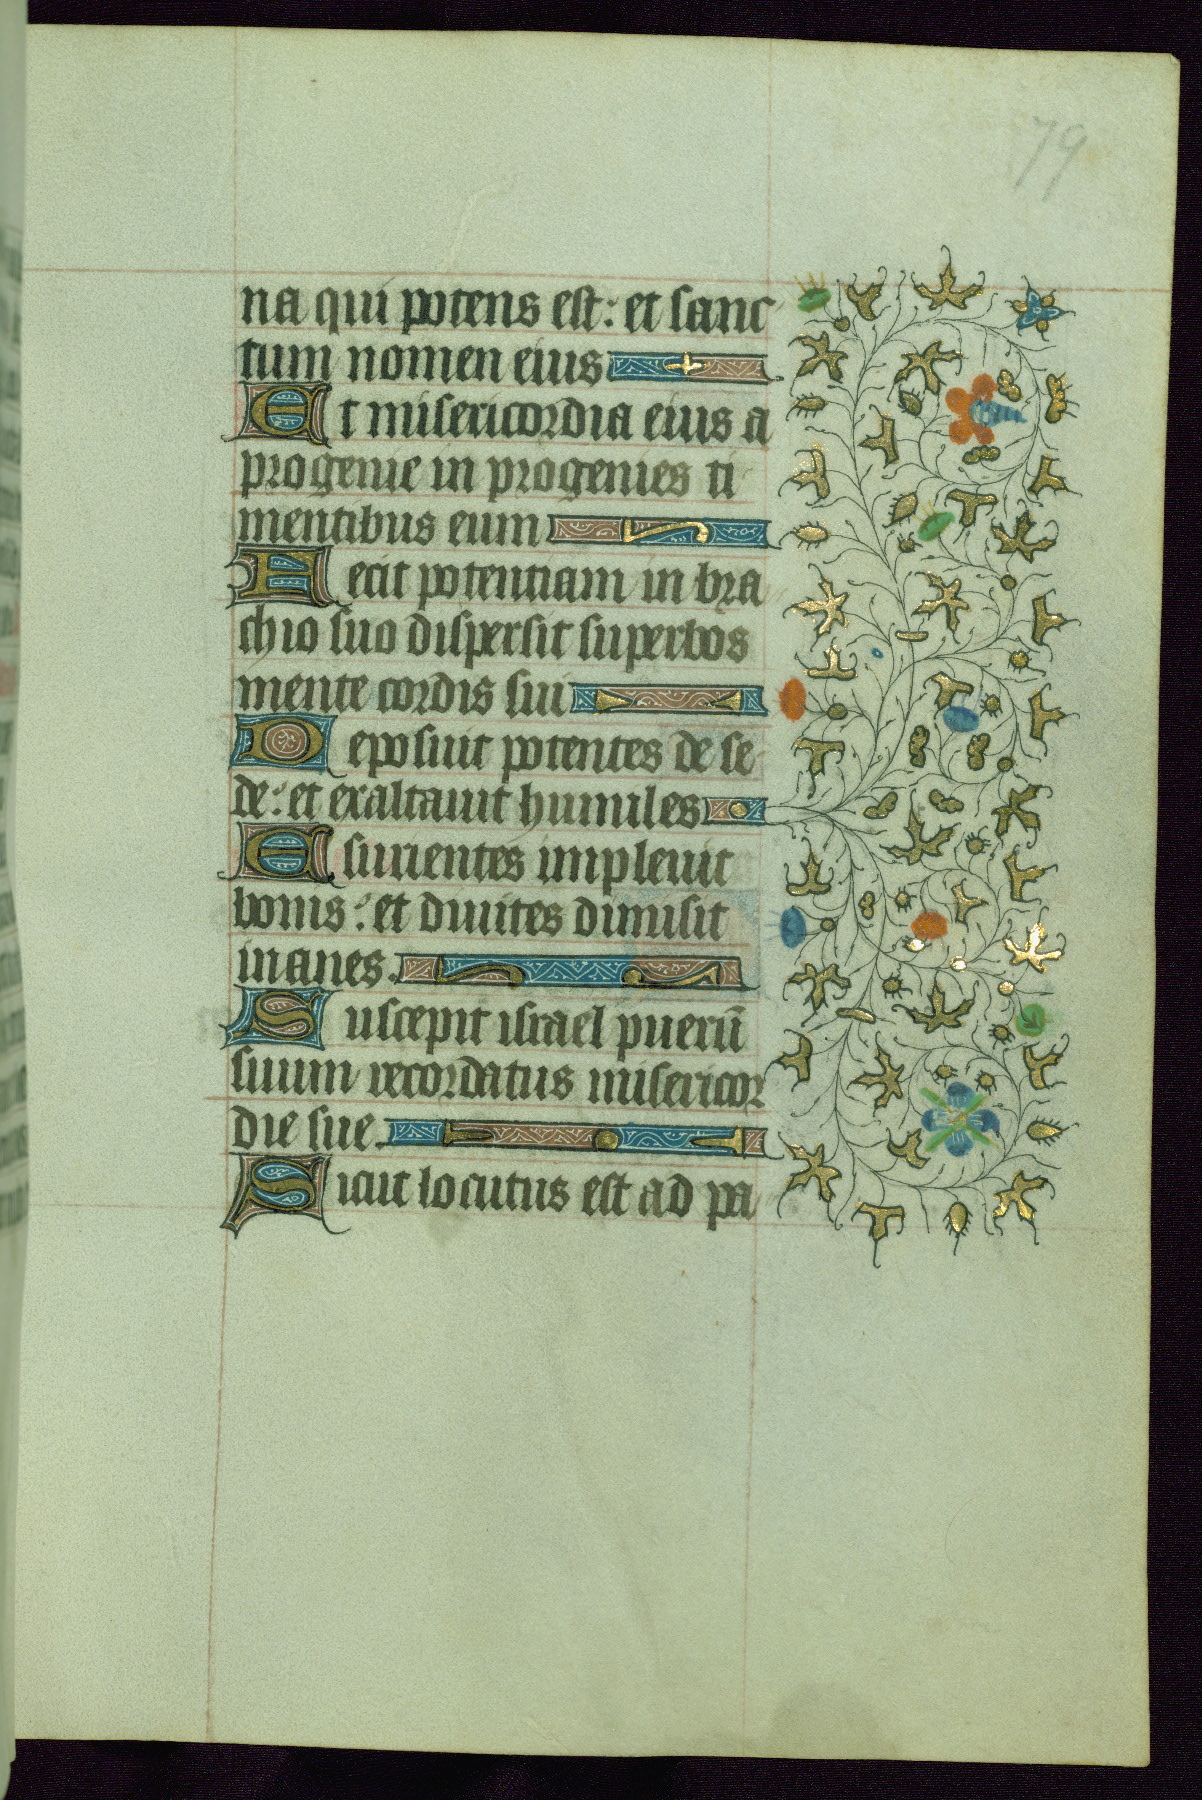 79
na qui potens est: et sanc
tum nomen eius
Et misericordia eius a
progenie in progenies ti
mentibus eum
Fecit potentiam in bra
chio suo dispersit superbos
mente cordis sui
Deposuit potentes de se
de: et exaltauit humiles
Esurientes impleuit
bonis: et diuites dimisit
inanes.
Suscepit israel puerū
suum recordatus misericor
die sue.
Sicut locutus est ad pa